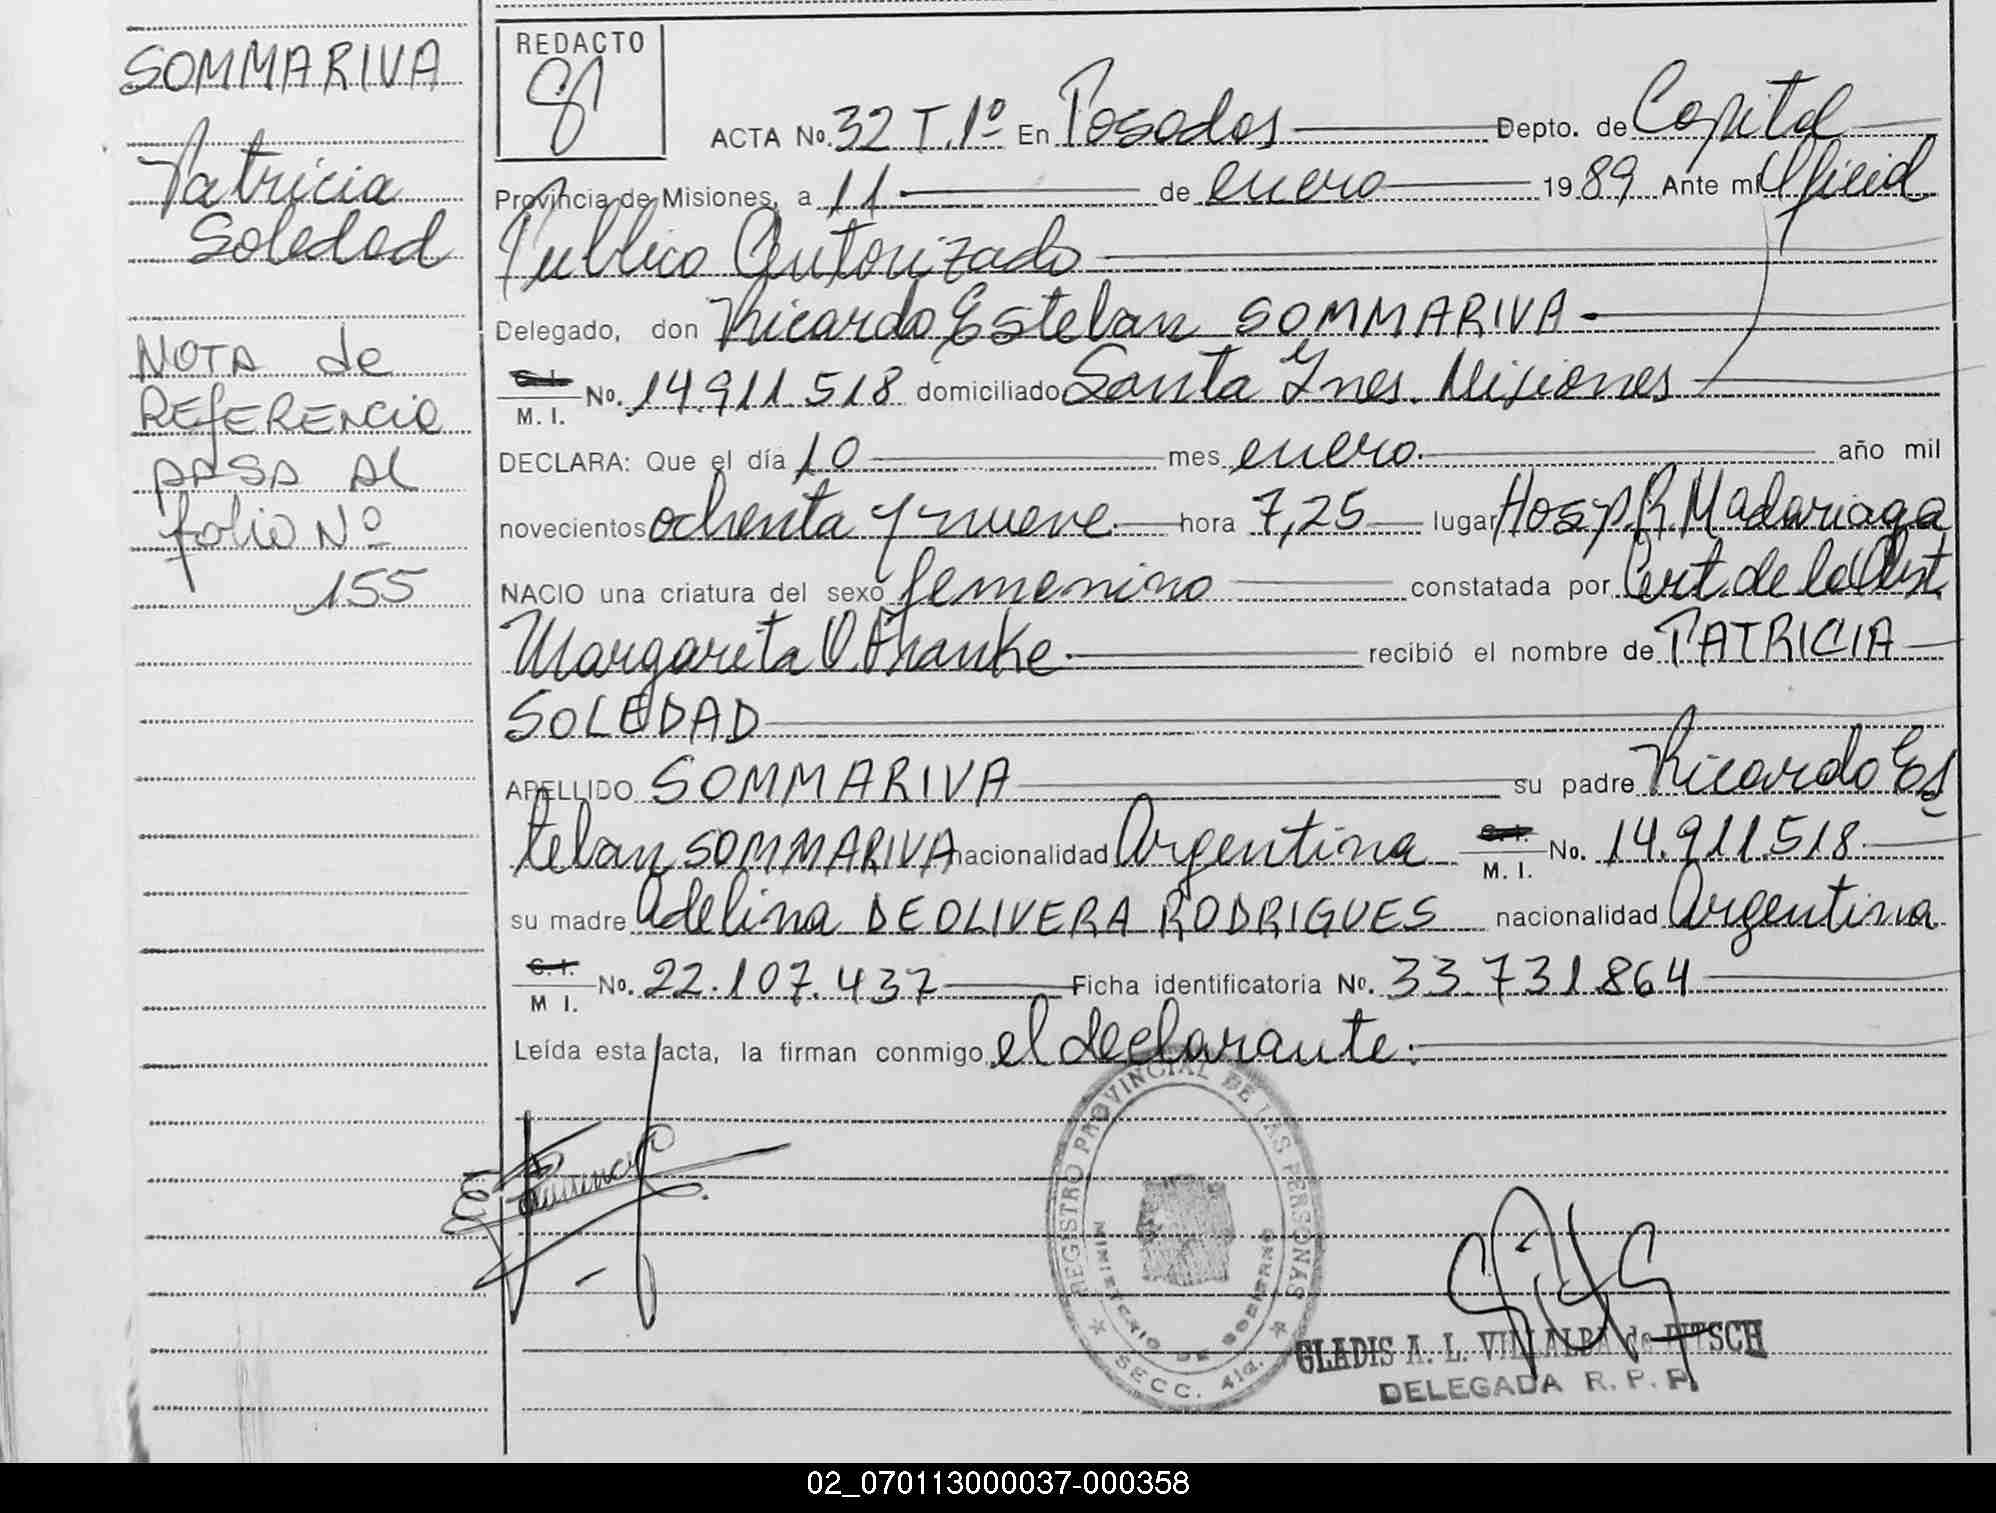 SOMMARIVA
Patricia
Soledad
NOTA de
REfERENCIA
PASA AL
folio Nº
155
REDACTO
ACTA No. 32 T.1º En Posadas Depto. de Capital
Provincia de Misiones, a 11 de enero 1989 Ante mi Oficial
Publico Autorizado
Delegado, don Ricardo Esteban SOMMARIVA
C.I. M.I. No. 14.911.518 domiciliado Santa Ines. Misiones
DECLARA: Que el día 10 mes enero. año mil
novecientos ochenta y nueve. hora 7,25 lugar Hosp. R. Madariaga
NACIO una criatura del sexo femenino constatada por Cert. de la Obst.
Margareta O. Franke. recibió el nombre de PATRICIA
SOLEDAD
APELLIDO SOMMARIVA su padre Ricardo Es
teban SOMMARIVA nacionalidad Argentina C.I. M.I. No. 14.911.518.
su madre Adelina DEOLIVERA RODRIGUES nacionalidad Argentina
C.I. M I. No. 22.107.437 Ficha identificatoria No. 33.731.864
Leída esta acta, la firman conmigo el declarante.
REGISTRO PROVINCIAL DE LAS PERSONAS
MINISTERIO DE GOBIERNO
SECC. 41a.
GLADIS A. L. VILLALBA de
DELEGADA R. P. P.
02_070113000037-000358